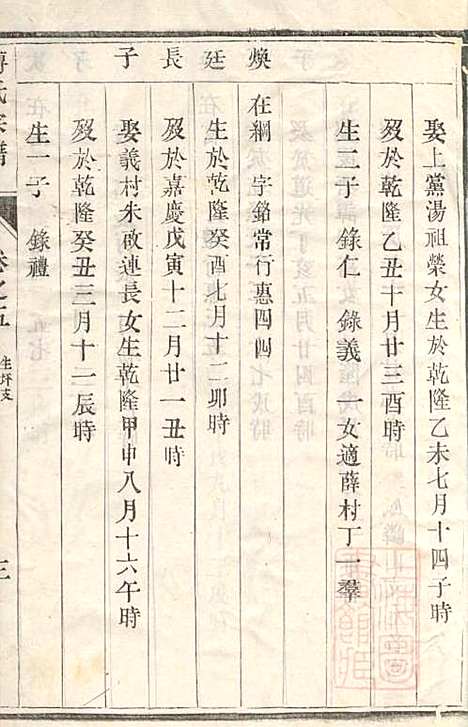 娶上黨湯祖榮女生於乾隆乙未七月十四子時
歿於乾隆乙丑十月廿三酉時
生二子 錄仁 錄義 一女適薛村丁一羣
煥
在綱 字銘常行惠四四
廷
生於乾隆癸酉七月十二卯時
長
歿於嘉慶戊寅十二月廿一丑時
子
娶義村朱啟連長女生乾隆甲申八月十六午時
歿於乾隆癸丑三月十二辰時
生一子 錄禮
氏宗譜
卷之五
生坪支
三